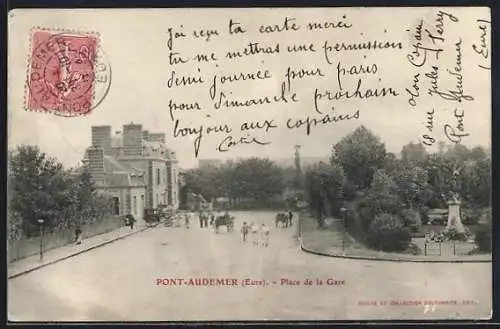 PONT-AUDEMER
EURE
j'ai reçu ta carte merci
tu me mettras une permission
demi journée pour paris
pour Dimanche prochain
bonjour aux copains
Mon Copain
8 rue Jules Ferry
Pont Audemer
(Eure)
PONT-AUDEMER (Eure). - Place de la Gare
COLLECTION